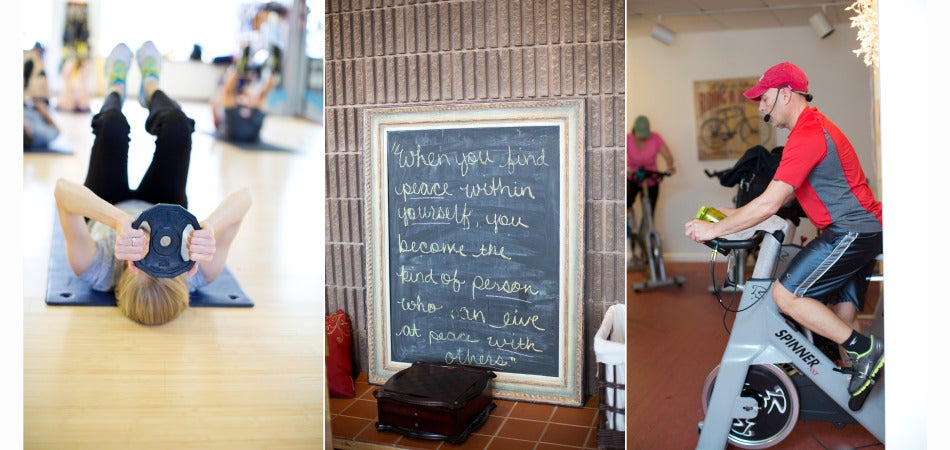 "When you find
peace within
yourself, you
become the
kind of person
who can live
at peace with
others"
SPINNER